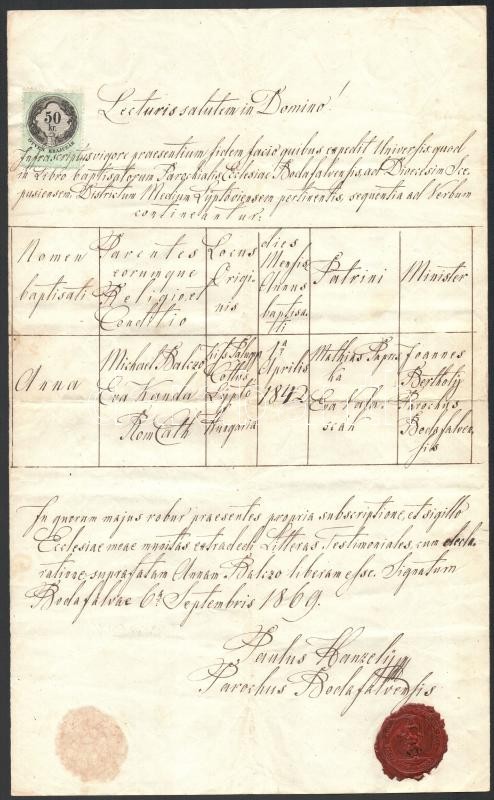 50
kr.
Lecturis salutem in Domino!
Infrascriptus vigore praesentium fidem facio quibus expedit Universis, quod
in Libro baptisatorum Parochialis Ecclesiae Bodafalvensis, ad Dioecesim Sce-
pusiensem Districtum Medium Lyptoviensem pertinentis, sequentia ad Verbum
contineantur:
Nomen
baptisati
Parentes
eorumque
Religio et
Conditio
Locus
Origi-
nis
dies
Mensis
Annus
baptisa-
ti
Patrini
Minister
Anna
Michael Balczo
Eva Kanda
Rom Cath
Kis Paluga
Cottus
Lyptó
Hungaria
Aprilis
1842
Mathias
ka
Eva
Joannes
Bertholy
Parochus
Bodafalven-
sis
In quorum majus robur praesentes propria subscriptione, et sigillo
Ecclesiae meae munitas extradedi Litteras Testimoniales, cum decla-
ratione suprafatam Annam Balczo liberam esse. Signatum
Bodafalvae 6a Septembris 1869.
Paulus Hanzely
Parochus Bodafalvensis